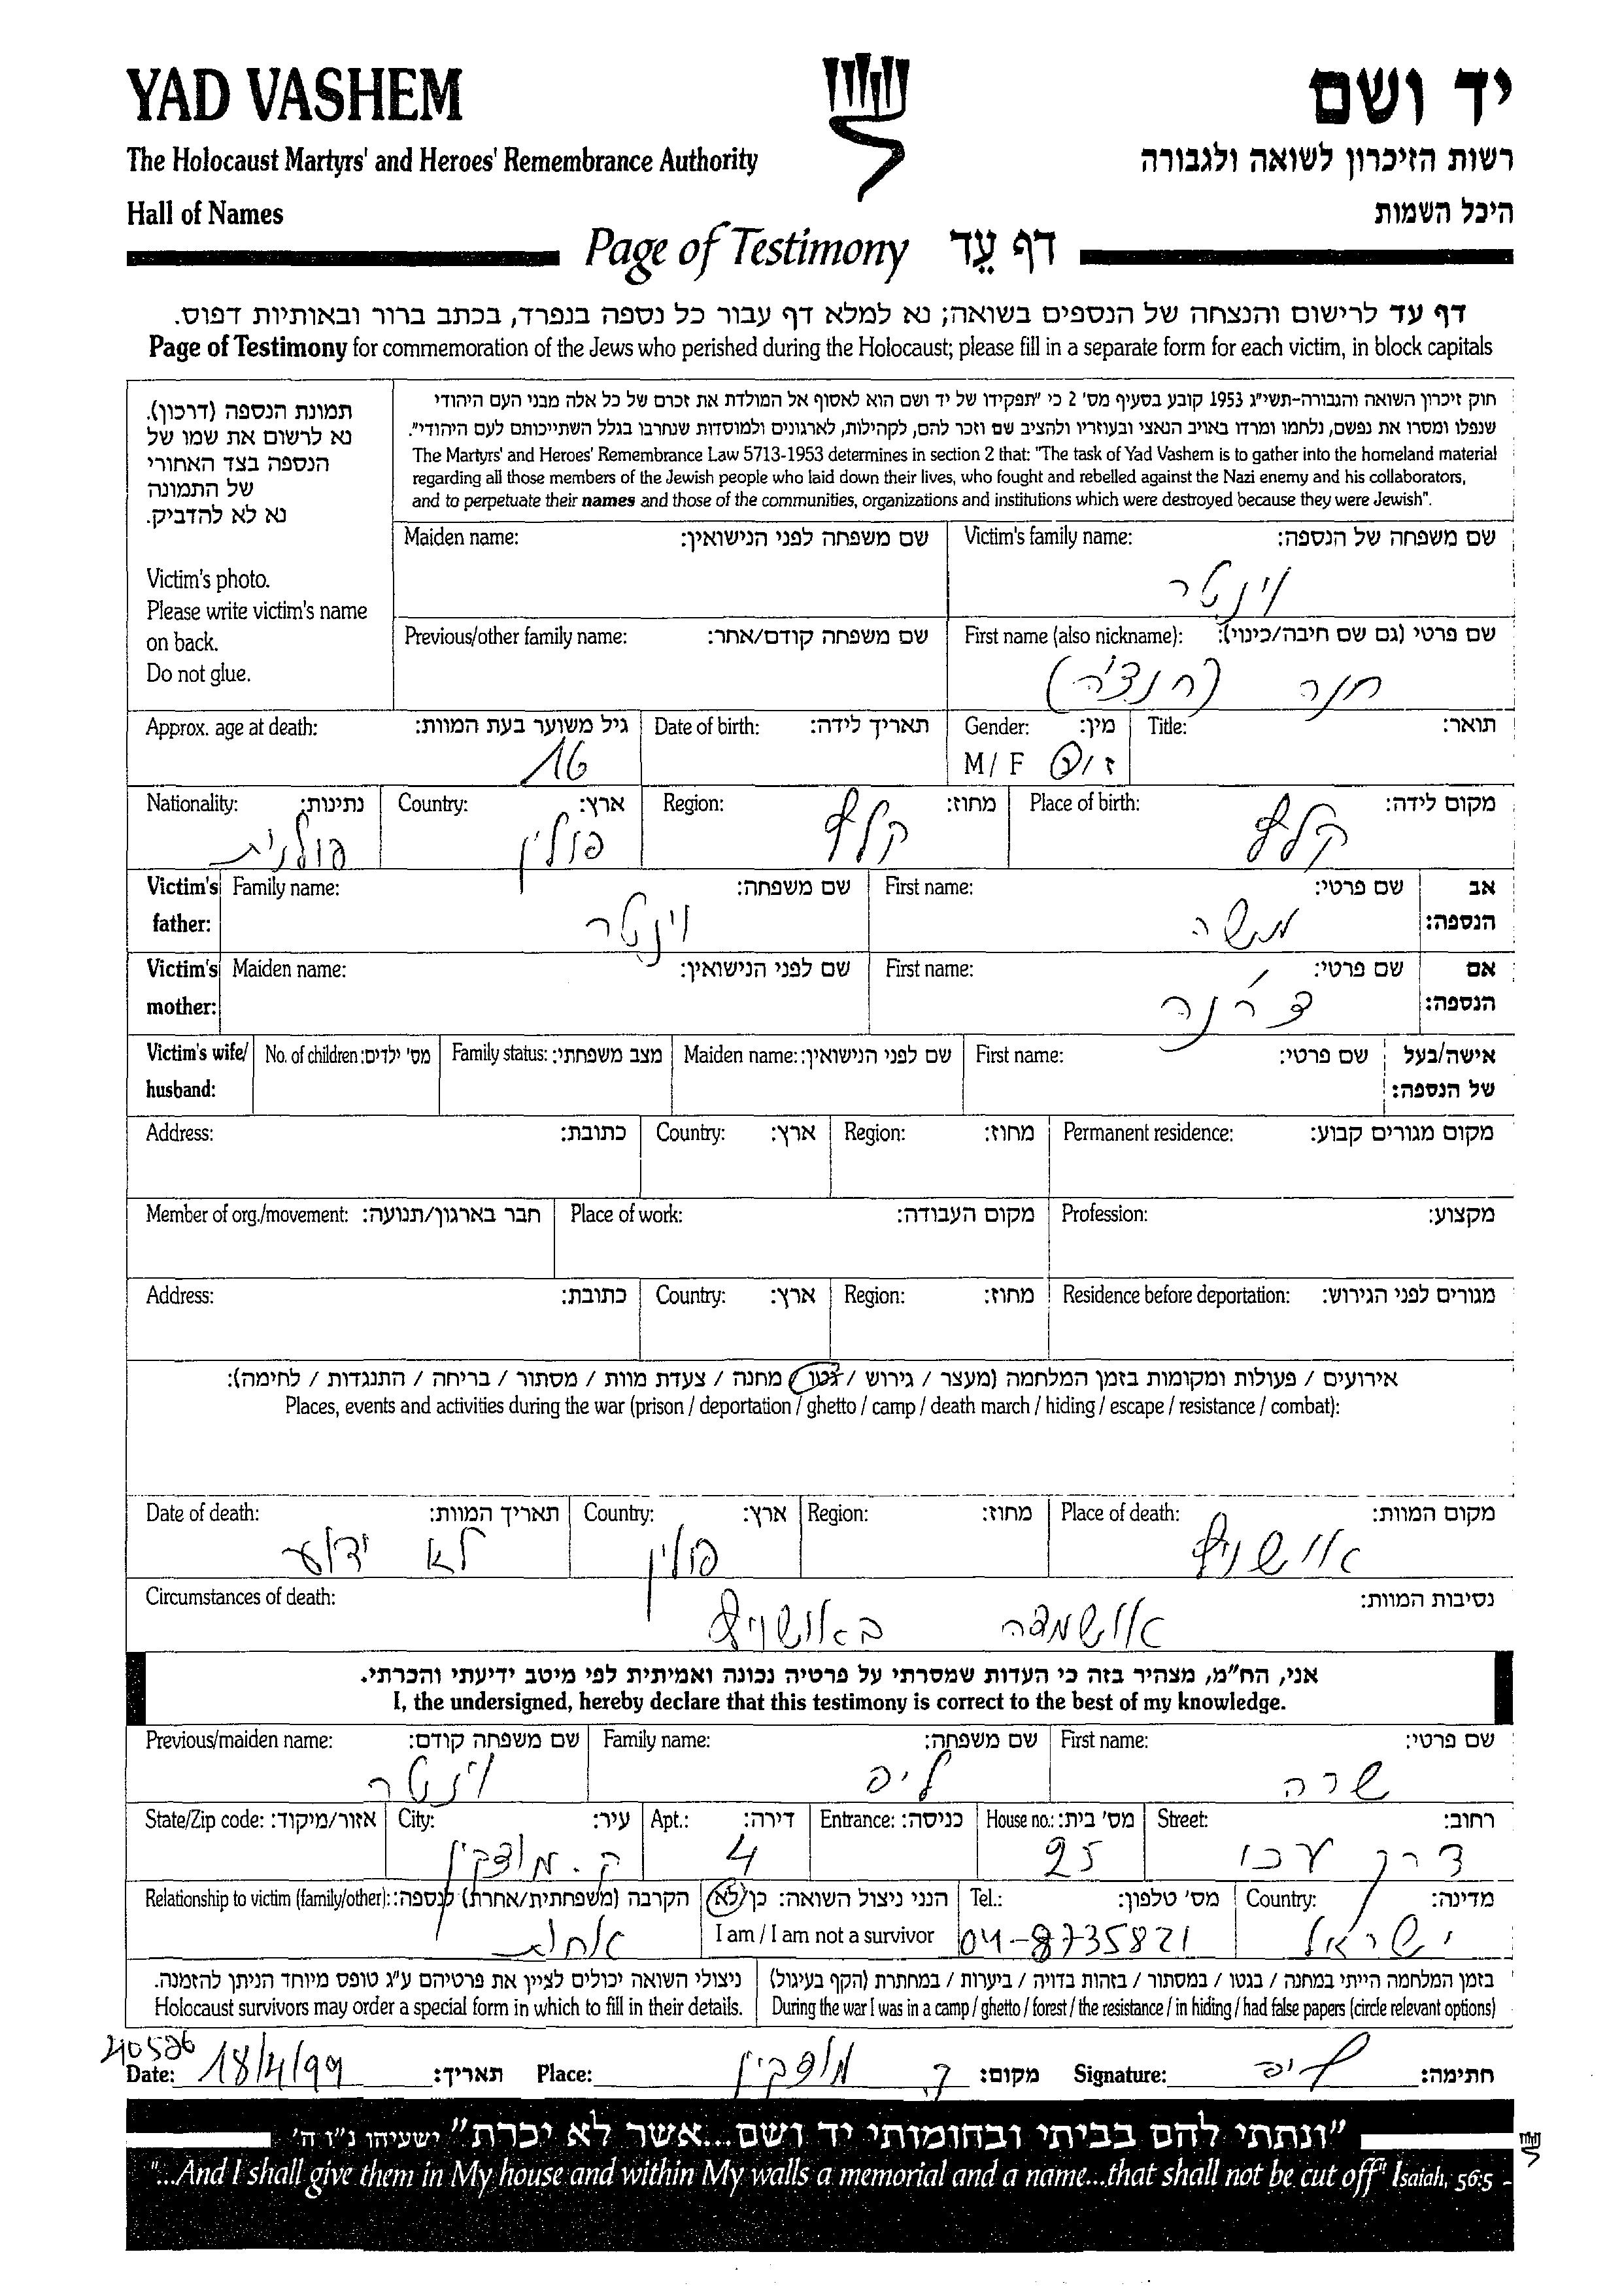 YAD VASHEM
יד ושם
The Holocaust Martyrs' and Heroes' Remembrance Authority
רשות הזיכרון לשואה ולגבורה
Hall of Names
היכל השמות
Page of Testimony דף עֵד
דף עד לרישום והנצחה של הנספים בשואה; נא למלא דף עבור כל נספה בנפרד, בכתב ברור ובאותיות דפוס.
Page of Testimony for commemoration of the Jews who perished during the Holocaust; please fill in a separate form for each victim, in block capitals
תמונת הנספה (דרכון).
נא לרשום את שמו של
הנספה בצד האחורי
של התמונה
נא לא להדביק.
Victim's photo.
Please write victim's name
on back.
Do not glue.
חוק זיכרון השואה והגבורה-תשי"ג 1953 קובע בסעיף מס' 2 כי "תפקידו של יד ושם הוא לאסוף אל המולדת את זכרם של כל אלה מבני העם היהודי
שנפלו ומסרו את נפשם, נלחמו ומרדו באויב הנאצי ובעוזריו ולהציב שם וזכר להם, לקהילות, לארגונים ולמוסדות שנחרבו בגלל השתייכותם לעם היהודי".
The Martyrs' and Heroes' Remembrance Law 5713-1953 determines in section 2 that: "The task of Yad Vashem is to gather into the homeland material
regarding all those members of the Jewish people who laid down their lives, who fought and rebelled against the Nazi enemy and his collaborators,
and to perpetuate their names and those of the communities, organizations and institutions which were destroyed because they were Jewish".
Maiden name: שם משפחה לפני הנישואין: Victim's family name: שם משפחה של הנספה:
וינטר
Previous/other family name: שם משפחה קודם/אחר: First name (also nickname): שם פרטי (גם שם חיבה/כינוי):
חנה (חנצ'ה)
Approx. age at death: גיל משוער בעת המוות: Date of birth: תאריך לידה: Gender: מין: Title: תואר:
16 M / F ז / נ
Nationality: נתינות: Country: ארץ: Region: מחוז: Place of birth: מקום לידה:
פולנית פולין קלץ קלץ
Victim's father: Family name: שם משפחה: First name: שם פרטי: אב הנספה:
וינטר משה
Victim's mother: Maiden name: שם לפני הנישואין: First name: שם פרטי: אם הנספה:
Victim's wife/ husband: No. of children: מס' ילדים: Family status: מצב משפחתי: Maiden name: שם לפני הנישואין: First name: שם פרטי: אישה/בעל של הנספה:
Address: כתובת: Country: ארץ: Region: מחוז: Permanent residence: מקום מגורים קבוע:
Member of org./movement: חבר בארגון/תנועה: Place of work: מקום העבודה: Profession: מקצוע:
Address: כתובת: Country: ארץ: Region: מחוז: Residence before deportation: מגורים לפני הגירוש:
אירועים / פעולות ומקומות בזמן המלחמה (מעצר / גירוש / גטו / מחנה / צעדת מוות / מסתור / בריחה / התנגדות / לחימה):
Places, events and activities during the war (prison / deportation / ghetto / camp / death march / hiding / escape / resistance / combat):
Date of death: תאריך המוות: Country: ארץ: Region: מחוז: Place of death: מקום המוות:
לא ידוע פולין אושויץ
Circumstances of death: נסיבות המוות:
אושמדה באושויץ
אני, הח"מ, מצהיר בזה כי העדות שמסרתי על פרטיה נכונה ואמיתית לפי מיטב ידיעתי והכרתי.
I, the undersigned, hereby declare that this testimony is correct to the best of my knowledge.
Previous/maiden name: שם משפחה קודם: Family name: שם משפחה: First name: שם פרטי:
וינטר ליפ שרה
State/Zip code: אזור/מיקוד: City: עיר: Apt.: דירה: Entrance: כניסה: House no.: מס' בית: Street: רחוב:
ק. מוצקין 4 25 דרך עכו
Relationship to victim (family/other): הקרבה (משפחתית/אחרת) לנספה: הנני ניצול השואה: כן/לא Tel.: מס' טלפון: Country: מדינה:
I am / I am not a survivor
אחות 04-8735821 ישראל
ניצולי השואה יכולים לציין את פרטיהם ע"ג טופס מיוחד הניתן להזמנה.
Holocaust survivors may order a special form in which to fill in their details.
בזמן המלחמה הייתי במחנה / בגטו / במסתור / בזהות בדויה / ביערות / במחתרת (הקף בעיגול)
During the war I was in a camp / ghetto / forest / the resistance / in hiding / had false papers (circle relevant options)
Date: 18/4/99 תאריך: Place: ק. מוצקין מקום: Signature: ליפ חתימה:
"ונתתי להם בביתי ובחומותי יד ושם...אשר לא יכרת" ישעיהו נ"ו ה'
"...And I shall give them in My house and within My walls a memorial and a name...that shall not be cut off" Isaiah, 56:5